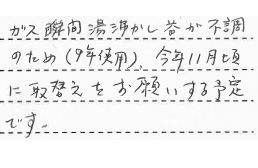 ガス瞬間湯沸かし器が不調
のため(9年使用)、今年11月頃
に取替えをお願いする予定
です。